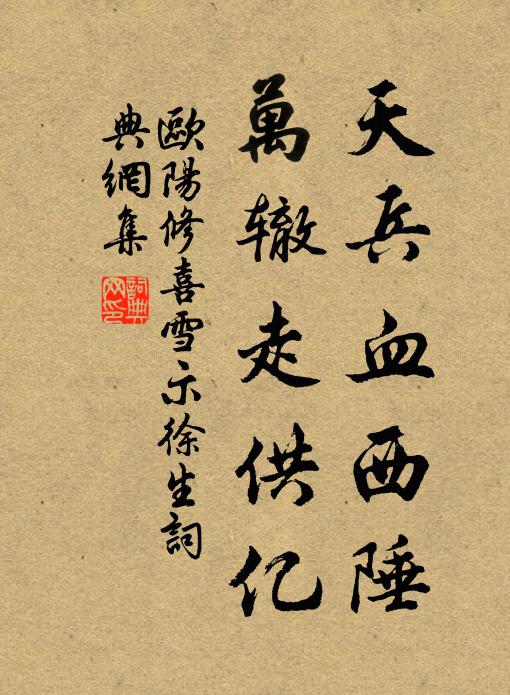 天兵血西陲
萬辙走供亿
歐陽修喜雪示徐生詞
典網集
詞典
网印